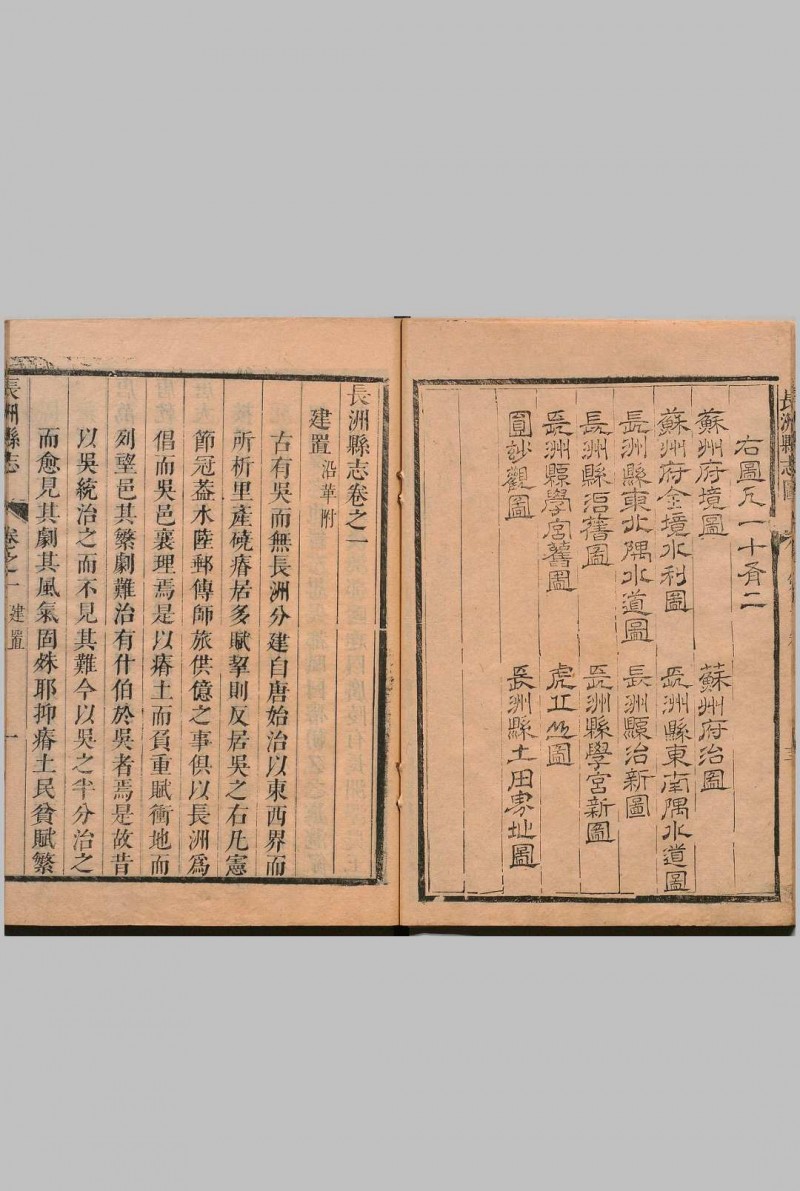 右圖凡一十有二
蘇州府境圖 蘇州府治圖
蘇州府全境水利圖 長洲縣東南隅水道圖
長洲縣東北隅水道圖 長洲縣治新圖
長洲縣治舊圖 長洲縣學宮新圖
長洲縣學宮舊圖 虎丘山圖
圓妙觀圖 長洲縣土田界址圖
長洲縣志卷之一
建置 沿革附
古有吳而無長洲分建自唐始治以東西界而
所析里產磽瘠居多賦挈則反居吳之右凡憲
節冠葢水陸郵傳師旅供億之事俱以長洲爲
倡而吳邑襄理焉是以瘠土而負重賦衝地而
列望邑其繁劇難治有什伯於吳者焉是故昔
以吳統治之而不見其難今以吳之半分治之
而愈見其劇其風氣固殊耶抑瘠土民貧賦繁
長洲縣志 卷之一 建置 一